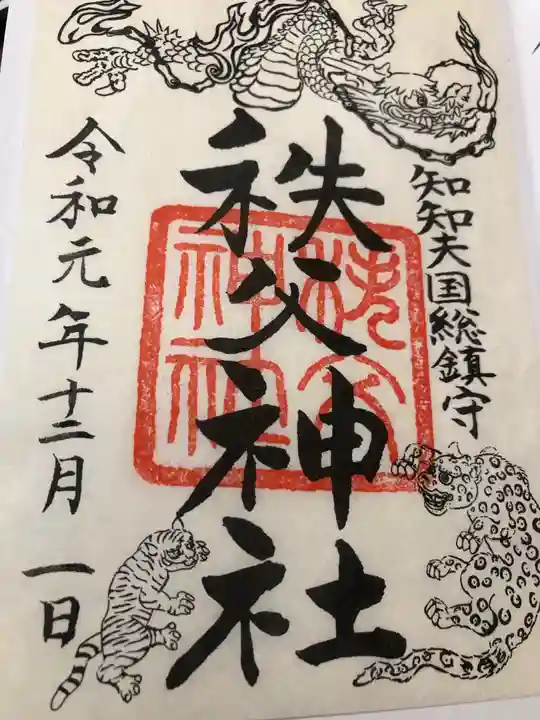 知知夫国総鎮守
秩父神社
秩父神社
令和元年十二月一日